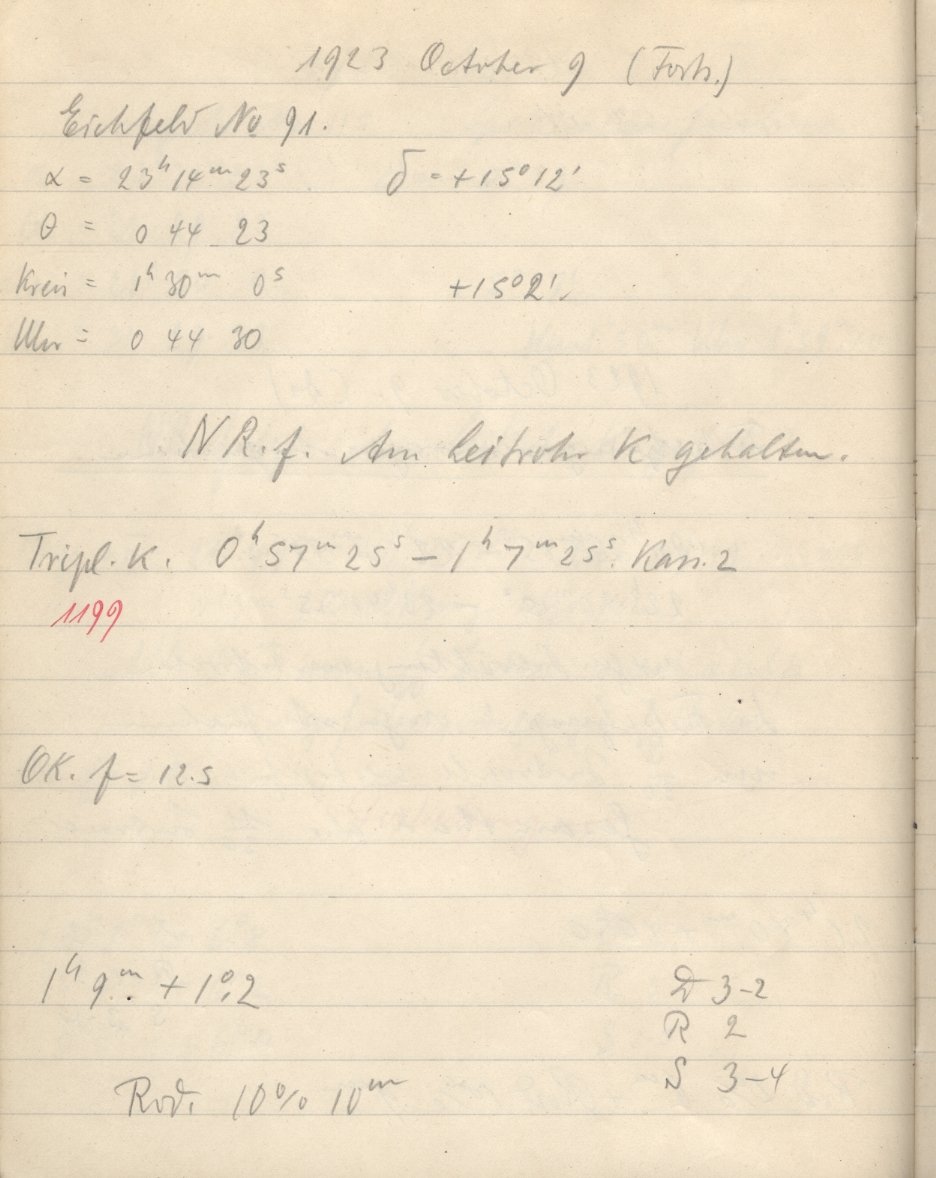 1923 October 9 (Forts.)
Eichfeld No 91.
α = 23ʰ14ᵐ23ˢ δ = +15°12'
θ = 0 44 23
Kreis = 1ʰ30ᵐ 0ˢ +15°2'.
Uhr = 0 44 30
N R.f. Am Leitrohr K gehalten.
Tripl. K. 0ʰ57ᵐ25ˢ – 1ʰ7ᵐ25ˢ. Kass. 2
1199
OK. f = 12.5
1ʰ9ᵐ. + 1°.2 D 3–2
R 2
S 3–4
Rod. 10% 10ᵐ